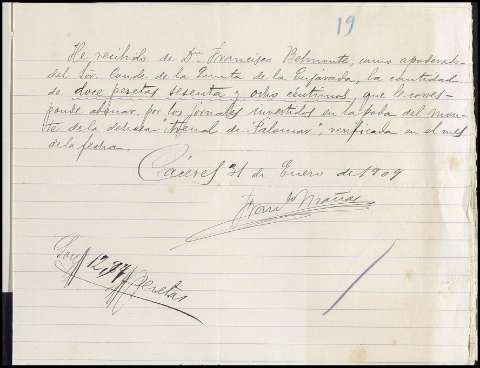 19
He recibido de Dn Francisco Belmonte, como apoderado
del Sor. Conde de la Quinta de la Enjarada, la cantidad
de doce pesetas sesenta y ocho céntimos, que le corres-
ponde abonar por los jornales invertidos en la poda del mon-
te de la dehesa "Arenal de Palomar", verificada en el mes
de la fecha.
Cáceres 31 de Enero de 1909
Muñoz
Son 12,97 Pesetas